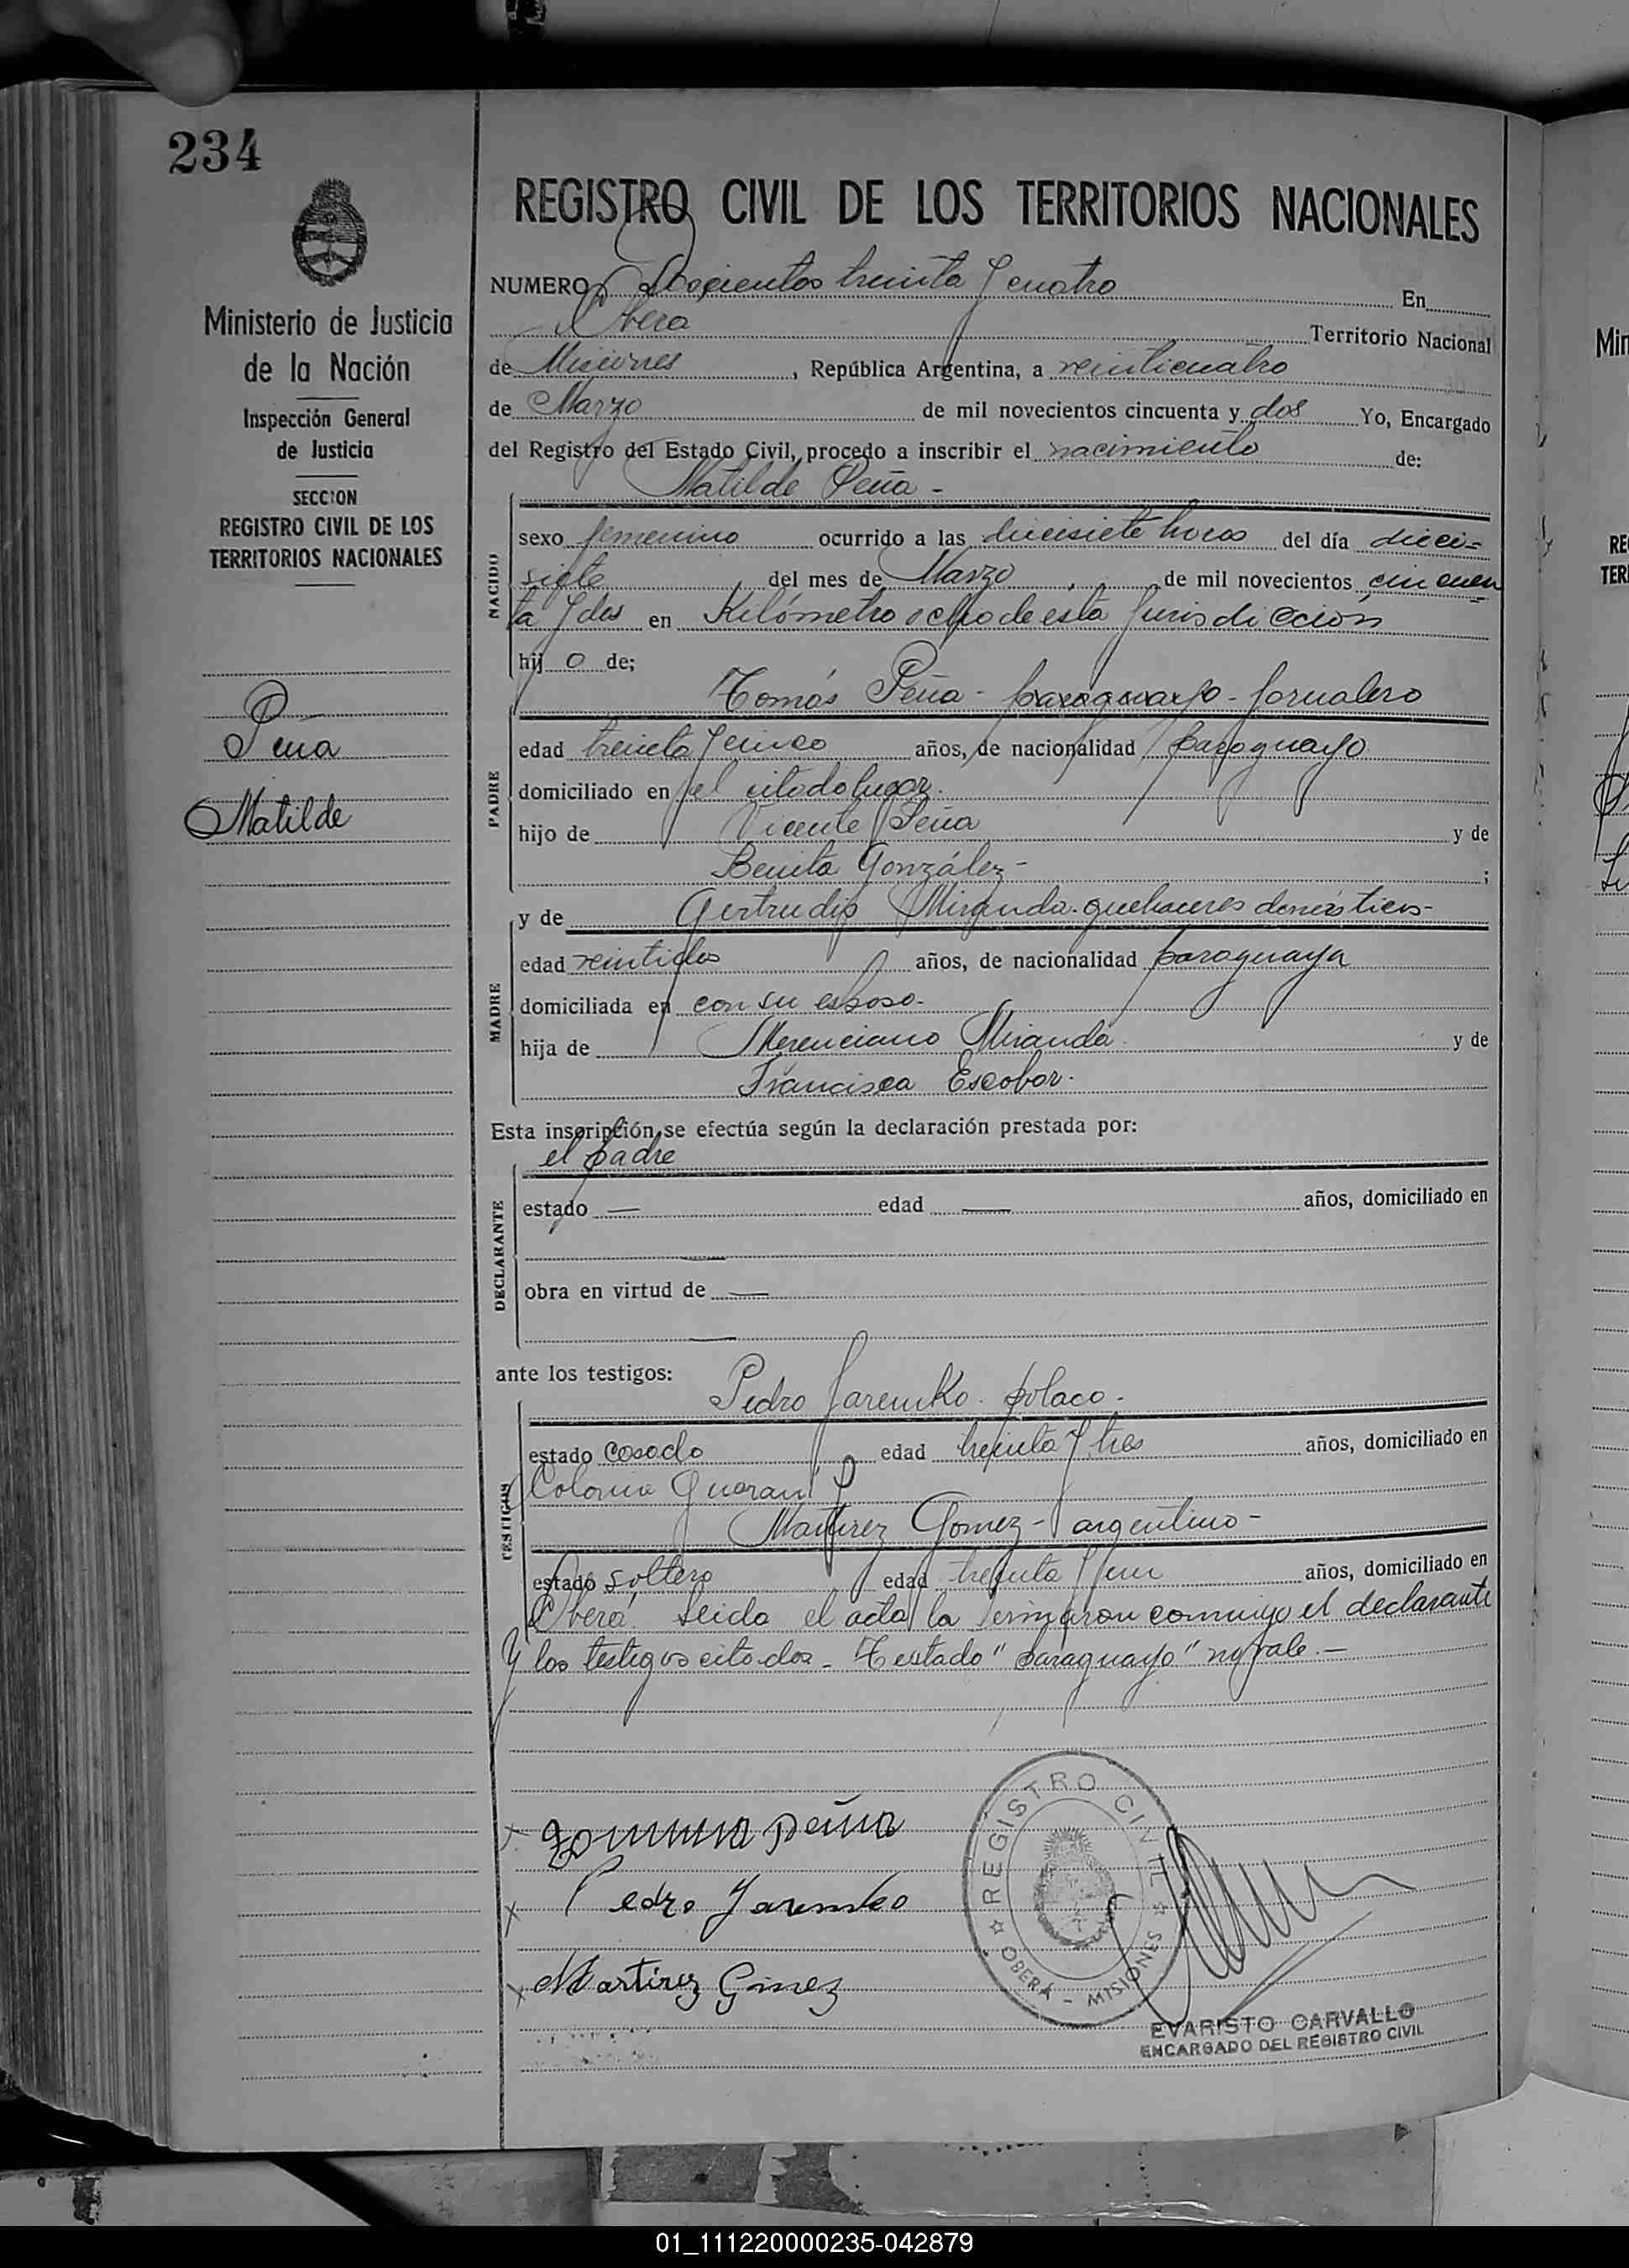 234
REGISTRO CIVIL DE LOS TERRITORIOS NACIONALES
Ministerio de Justicia
de la Nación
Inspección General
de Justicia
SECCION
REGISTRO CIVIL DE LOS
TERRITORIOS NACIONALES
Peña
Matilde
NUMERO Doscientos treinta y cuatro En
Oberá Territorio Nacional
de Misiones, República Argentina, a veinticuatro
de Marzo de mil novecientos cincuenta y dos Yo, Encargado
del Registro del Estado Civil, procedo a inscribir el nacimiento de:
Matilde Peña -
NACIDO
sexo femenino ocurrido a las diecisiete horas del día dieci=
siete del mes de Marzo de mil novecientos cincuen
ta y dos en Kilómetro ocho de esta Jurisdicción
hij o de;
Tomás Peña - paraguayo - Jornalero
PADRE
edad treinta y cinco años, de nacionalidad paraguayo
domiciliado en el citado lugar.
hijo de Vicente Peña y de
Benita González - ;
y de Gertrudis Miranda. quehaceres domésticos -
MADRE
edad veintidos años, de nacionalidad paraguaya
domiciliada en con su esposo.
hija de Merenciano Miranda y de
Francisca Escobar.
Esta inscripción se efectúa según la declaración prestada por:
el padre
DECLARANTE
estado — edad — años, domiciliado en
—
obra en virtud de —
—
ante los testigos:
Pedro Jaremko. polaco -
TESTIGOS
estado casado edad treinta y tres años, domiciliado en
Colonia Guaraní y
Martirez Gomez - argentino -
estado soltero edad treinta y un años, domiciliado en
Oberá. Leida el acta la firmaron conmigo el declarante
y los testigos citados - Testado "paraguayo" no vale. —
x Peña
x Pedro Jaremko
x Martirez Gomez
REGISTRO CIVIL
OBERÁ - MISIONES
EVARISTO CARVALLO
ENCARGADO DEL REGISTRO CIVIL
Min
RE
TER
01_111220000235-042879